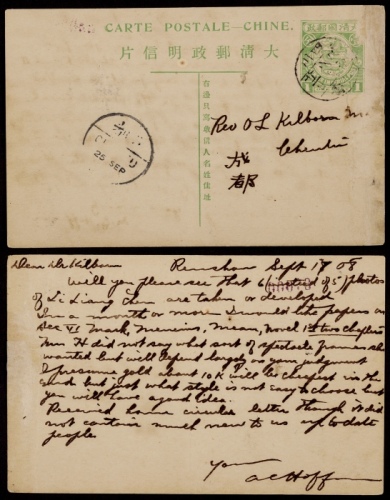 CARTE POSTALE—CHINE.
大清郵政明信片
大清國郵政
右邊只寫收信人名姓住址
1
25 SEP
Rev O L Kilborn M.
Chentu
成
都
Dear Dr Kilborn Renshow Sept 17 08
Will you please see that 6 (instead of 5) photos
of Li Liang Chen are taken or developed
In a month or more I would like papers on
Sec VI Mark, Mencius, Mean, Novel 1st two chapters
Mrs H did not say what sort of spectacle frames she
wanted but will depend largely on your judgment
I presume gold about 10 K will be cheapest in the
end but just what style is not easy to choose but
you will have a good idea.
Received home circular letter though it did
not contain much new to us up to date
people.
Yours
A C Hoffman